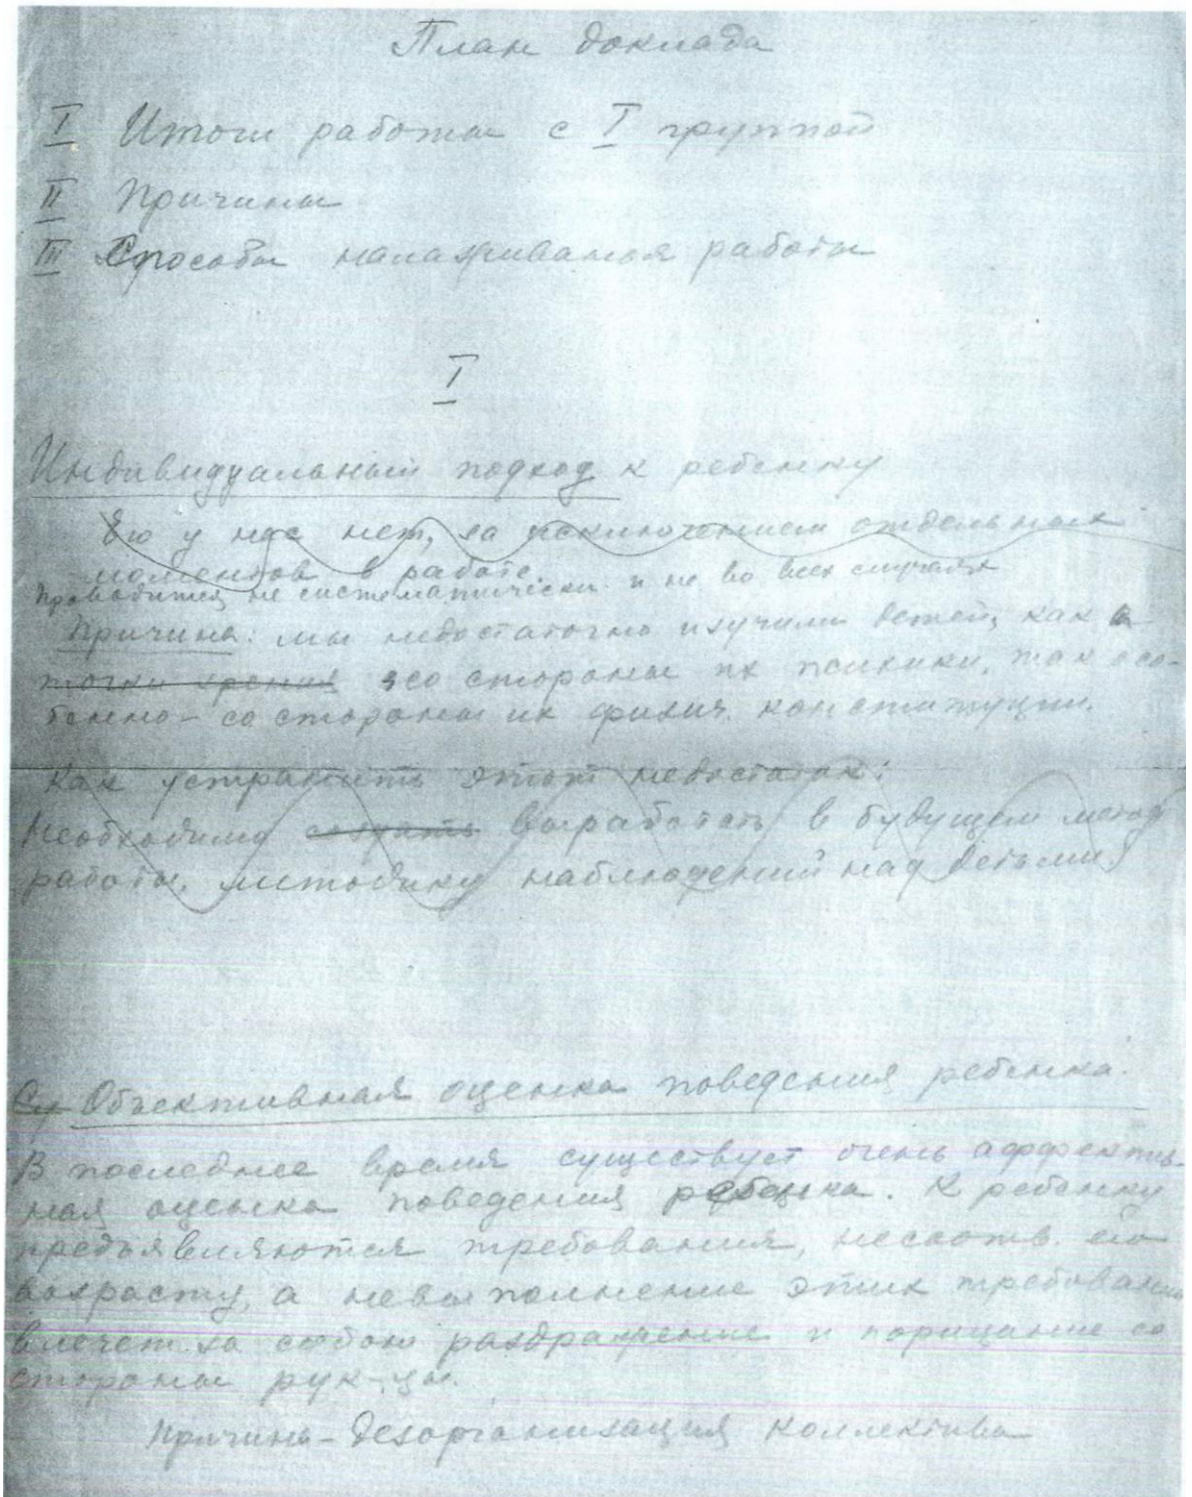 План доклада
I Итоги работы с I группой
II Причины
III Способы налаживания работы
I
Индивидуальный подход к ребенку
Его у нас нет, за исключением отдельных
моментов в работе.
Проводится не систематически и не во всех случаях
Причина: мы недостаточно изучили детей, как с
точки зрения со стороны их психики, так осо-
бенно - со стороны их физич. конституции.
Как устранить этот недостаток:
Необходимо создать выработать в будущем метод
работы, методику наблюдений над детьми.
Объективная оценка поведения ребенка.
В последнее время существует очень аффектив-
ная оценка поведения ребенка. К ребенку
предъявляются требования, несоотв. его
возрасту, а невыполнение этих требований
влечет за собою раздражение и порицание со
стороны рук-цы.
Причина - дезорганизация коллектива